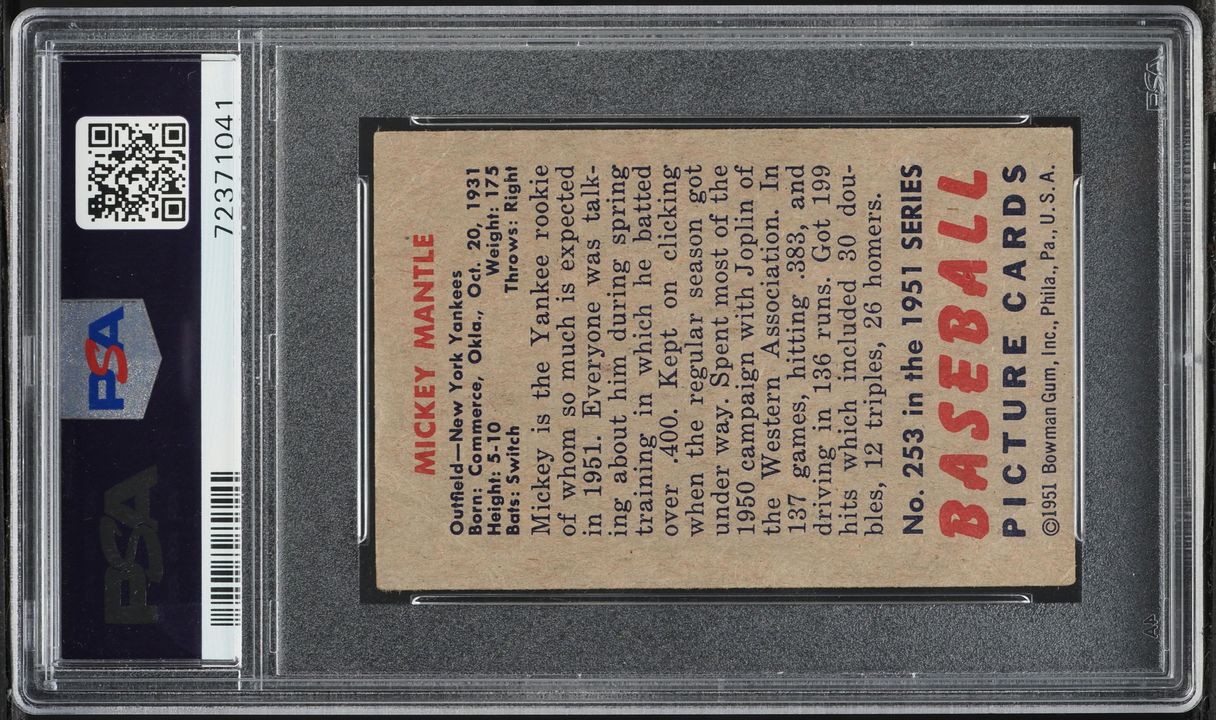 PSA
PSA
72371041
MICKEY MANTLE
Outfield—New York Yankees
Born: Commerce, Okla., Oct. 20, 1931
Height: 5-10 Weight: 175
Bats: Switch Throws: Right
Mickey is the Yankee rookie
of whom so much is expected
in 1951. Everyone was talk-
ing about him during spring
training in which he batted
over .400. Kept on clicking
when the regular season got
under way. Spent most of the
1950 campaign with Joplin of
the Western Association. In
137 games, hitting .383, and
driving in 136 runs. Got 199
hits which included 30 dou-
bles, 12 triples, 26 homers.
No. 253 in the 1951 SERIES
BASEBALL
PICTURE CARDS
©1951 Bowman Gum, Inc., Phila., Pa., U.S.A.
PSA